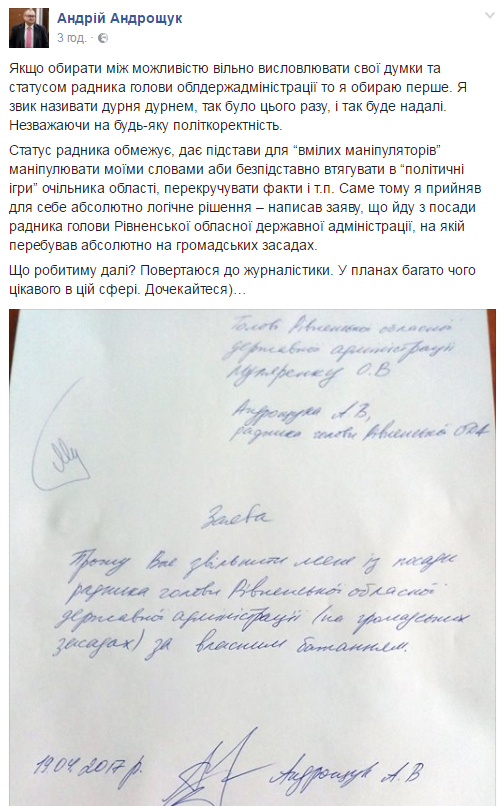 Андрій Андрощук
3 год. ·
Якщо обирати між можливістю вільно висловлювати свої думки та
статусом радника голови облдержадміністрації то я обираю перше. Я
звик називати дурня дурнем, так було цього разу, і так буде надалі.
Незважаючи на будь-яку політкоректність.
Статус радника обмежує, дає підстави для “вмілих маніпуляторів”
маніпулювати моїми словами аби безпідставно втягувати в “політичні
ігри” очільника області, перекручувати факти і т.п. Саме тому я прийняв
для себе абсолютно логічне рішення – написав заяву, що йду з посади
радника голови Рівненської обласної державної адміністрації, на якій
перебував абсолютно на громадських засадах.
Що робитиму далі? Повертаюся до журналістики. У планах багато чого
цікавого в цій сфері. Дочекайтеся)…
Голові Рівненської обласної
державної адміністрації
Муляренку О.В
Андрощука А.В,
радника голови Рівненської ОДА
Заява
Прошу Вас звільнити мене із посади
радника голови Рівненської обласної
державної адміністрації (на громадських
засадах) за власним бажанням.
19.04.2017 р.
Андрощук А.В